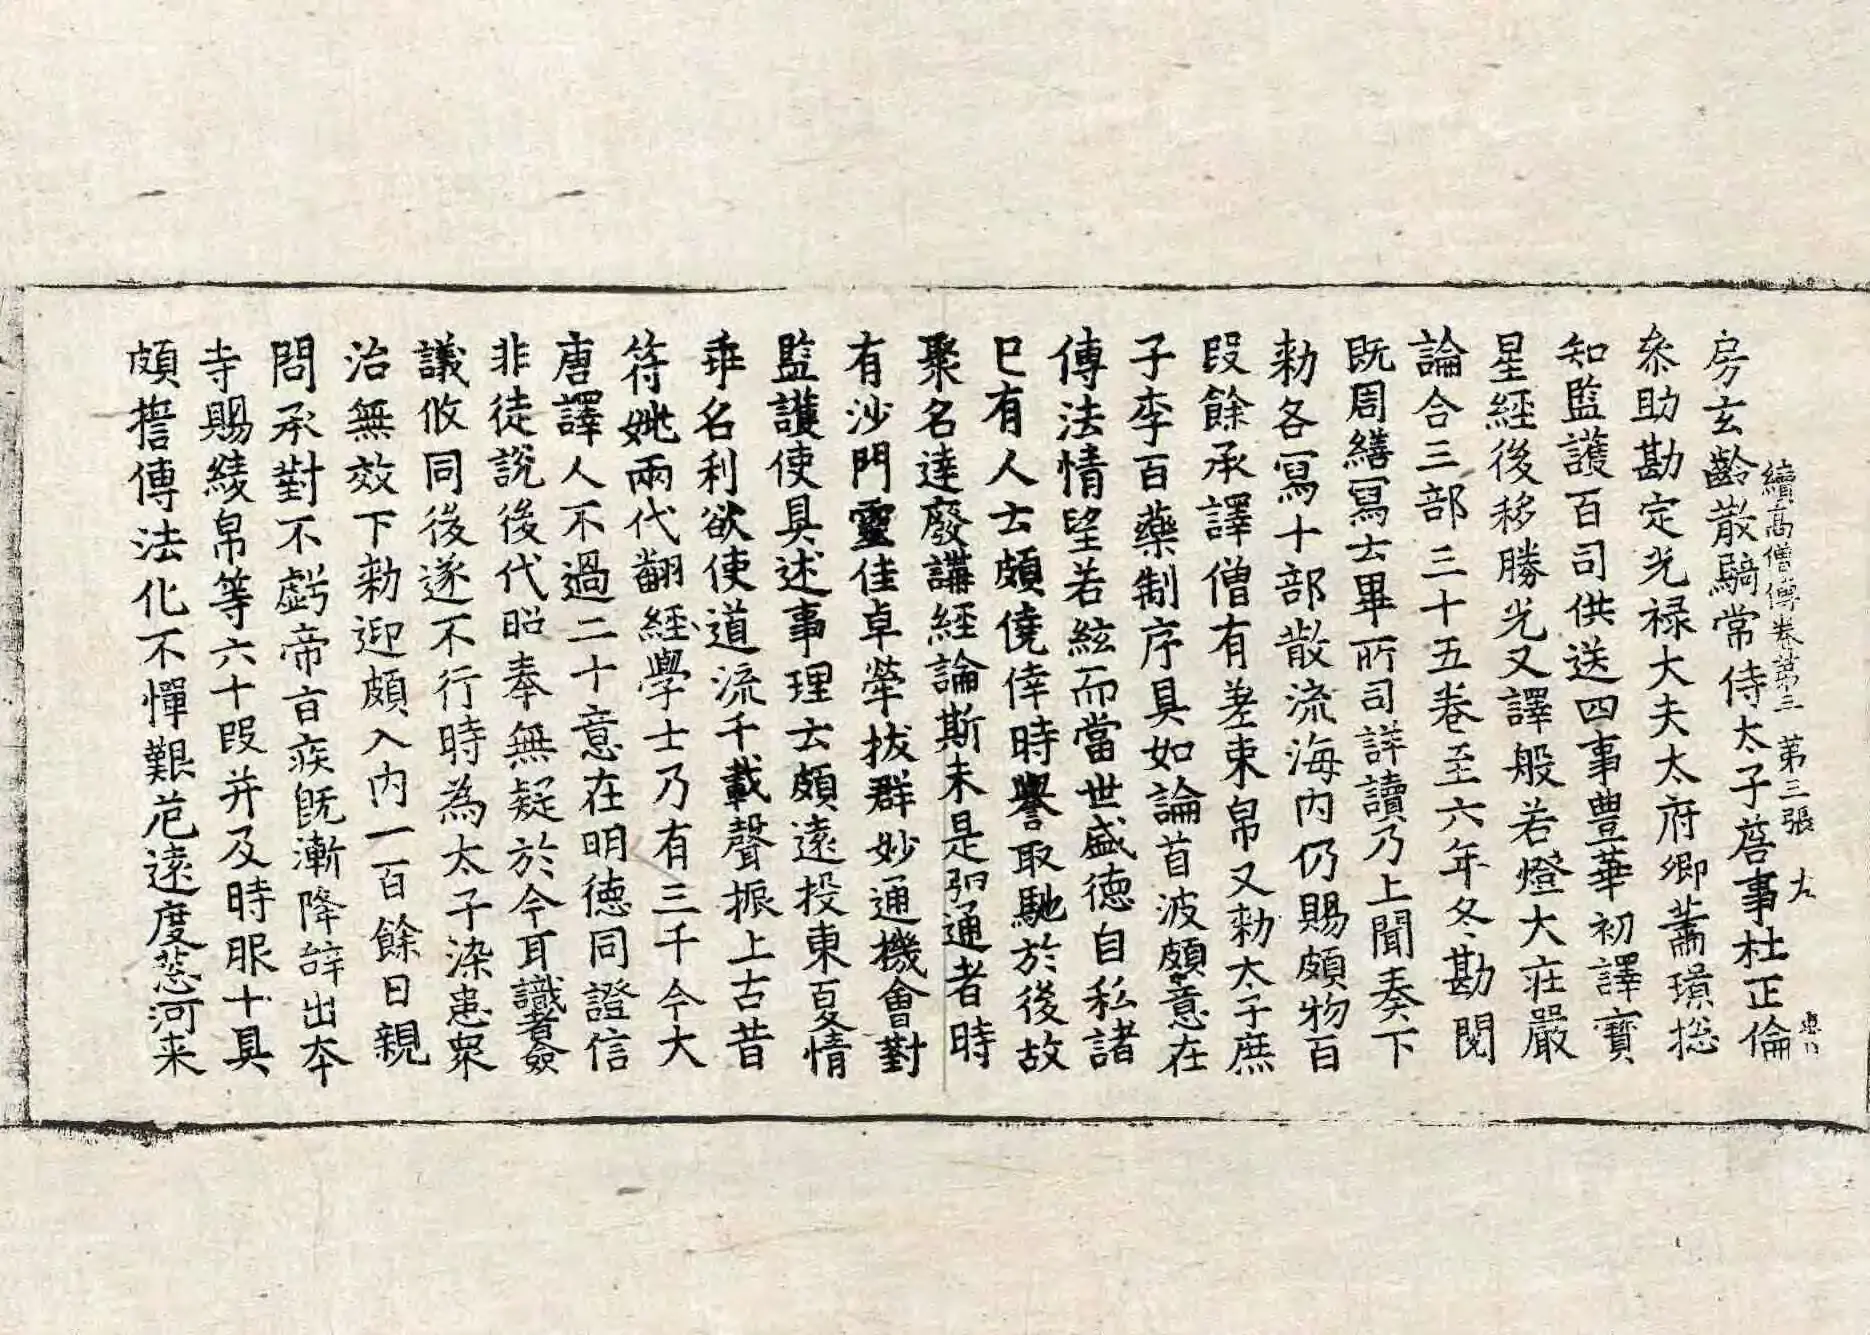 房玄齡散騎常侍太子詹事杜正倫
續高僧傳卷第三　第三張　九
叅助勘定光禄大夫太府卿蕭璟捴
知監護百司供送四事豊華初譯寳
星經後移勝光又譯般若燈大莊嚴
論合三部三十五卷至六年冬勘閱
旣周繕冩云畢所司詳讀乃上聞奏下
勑各冩十部散流海内仍賜頗物百
段餘承譯僧有差束帛又勑太子庶
子李百藥制序具如論首波頗意在
傳法情望若絃而當世盛德自私諸
已有人士頗僥倖時譽取馳於後故
聚名達廢講經論斯未是弘通者時
有沙門靈佳卓犖拔群妙通機會對
監護使具述事理云頗遠投東夏情
乖名利欲使道流千載聲振上古昔
符姚兩代翻經學士乃有三千今大
唐譯人不過二十意在明德同證信
非徒說後代昭奉無疑於今耳識者僉
議攸同後遂不行時為太子染患衆
治無效下勑迎頗入内一百餘日親
問承對不虧帝旨疾旣漸降辝出夲
寺賜綾帛等六十段并及時服十具
頗擔傳法化不憚艱危遠度葱河来